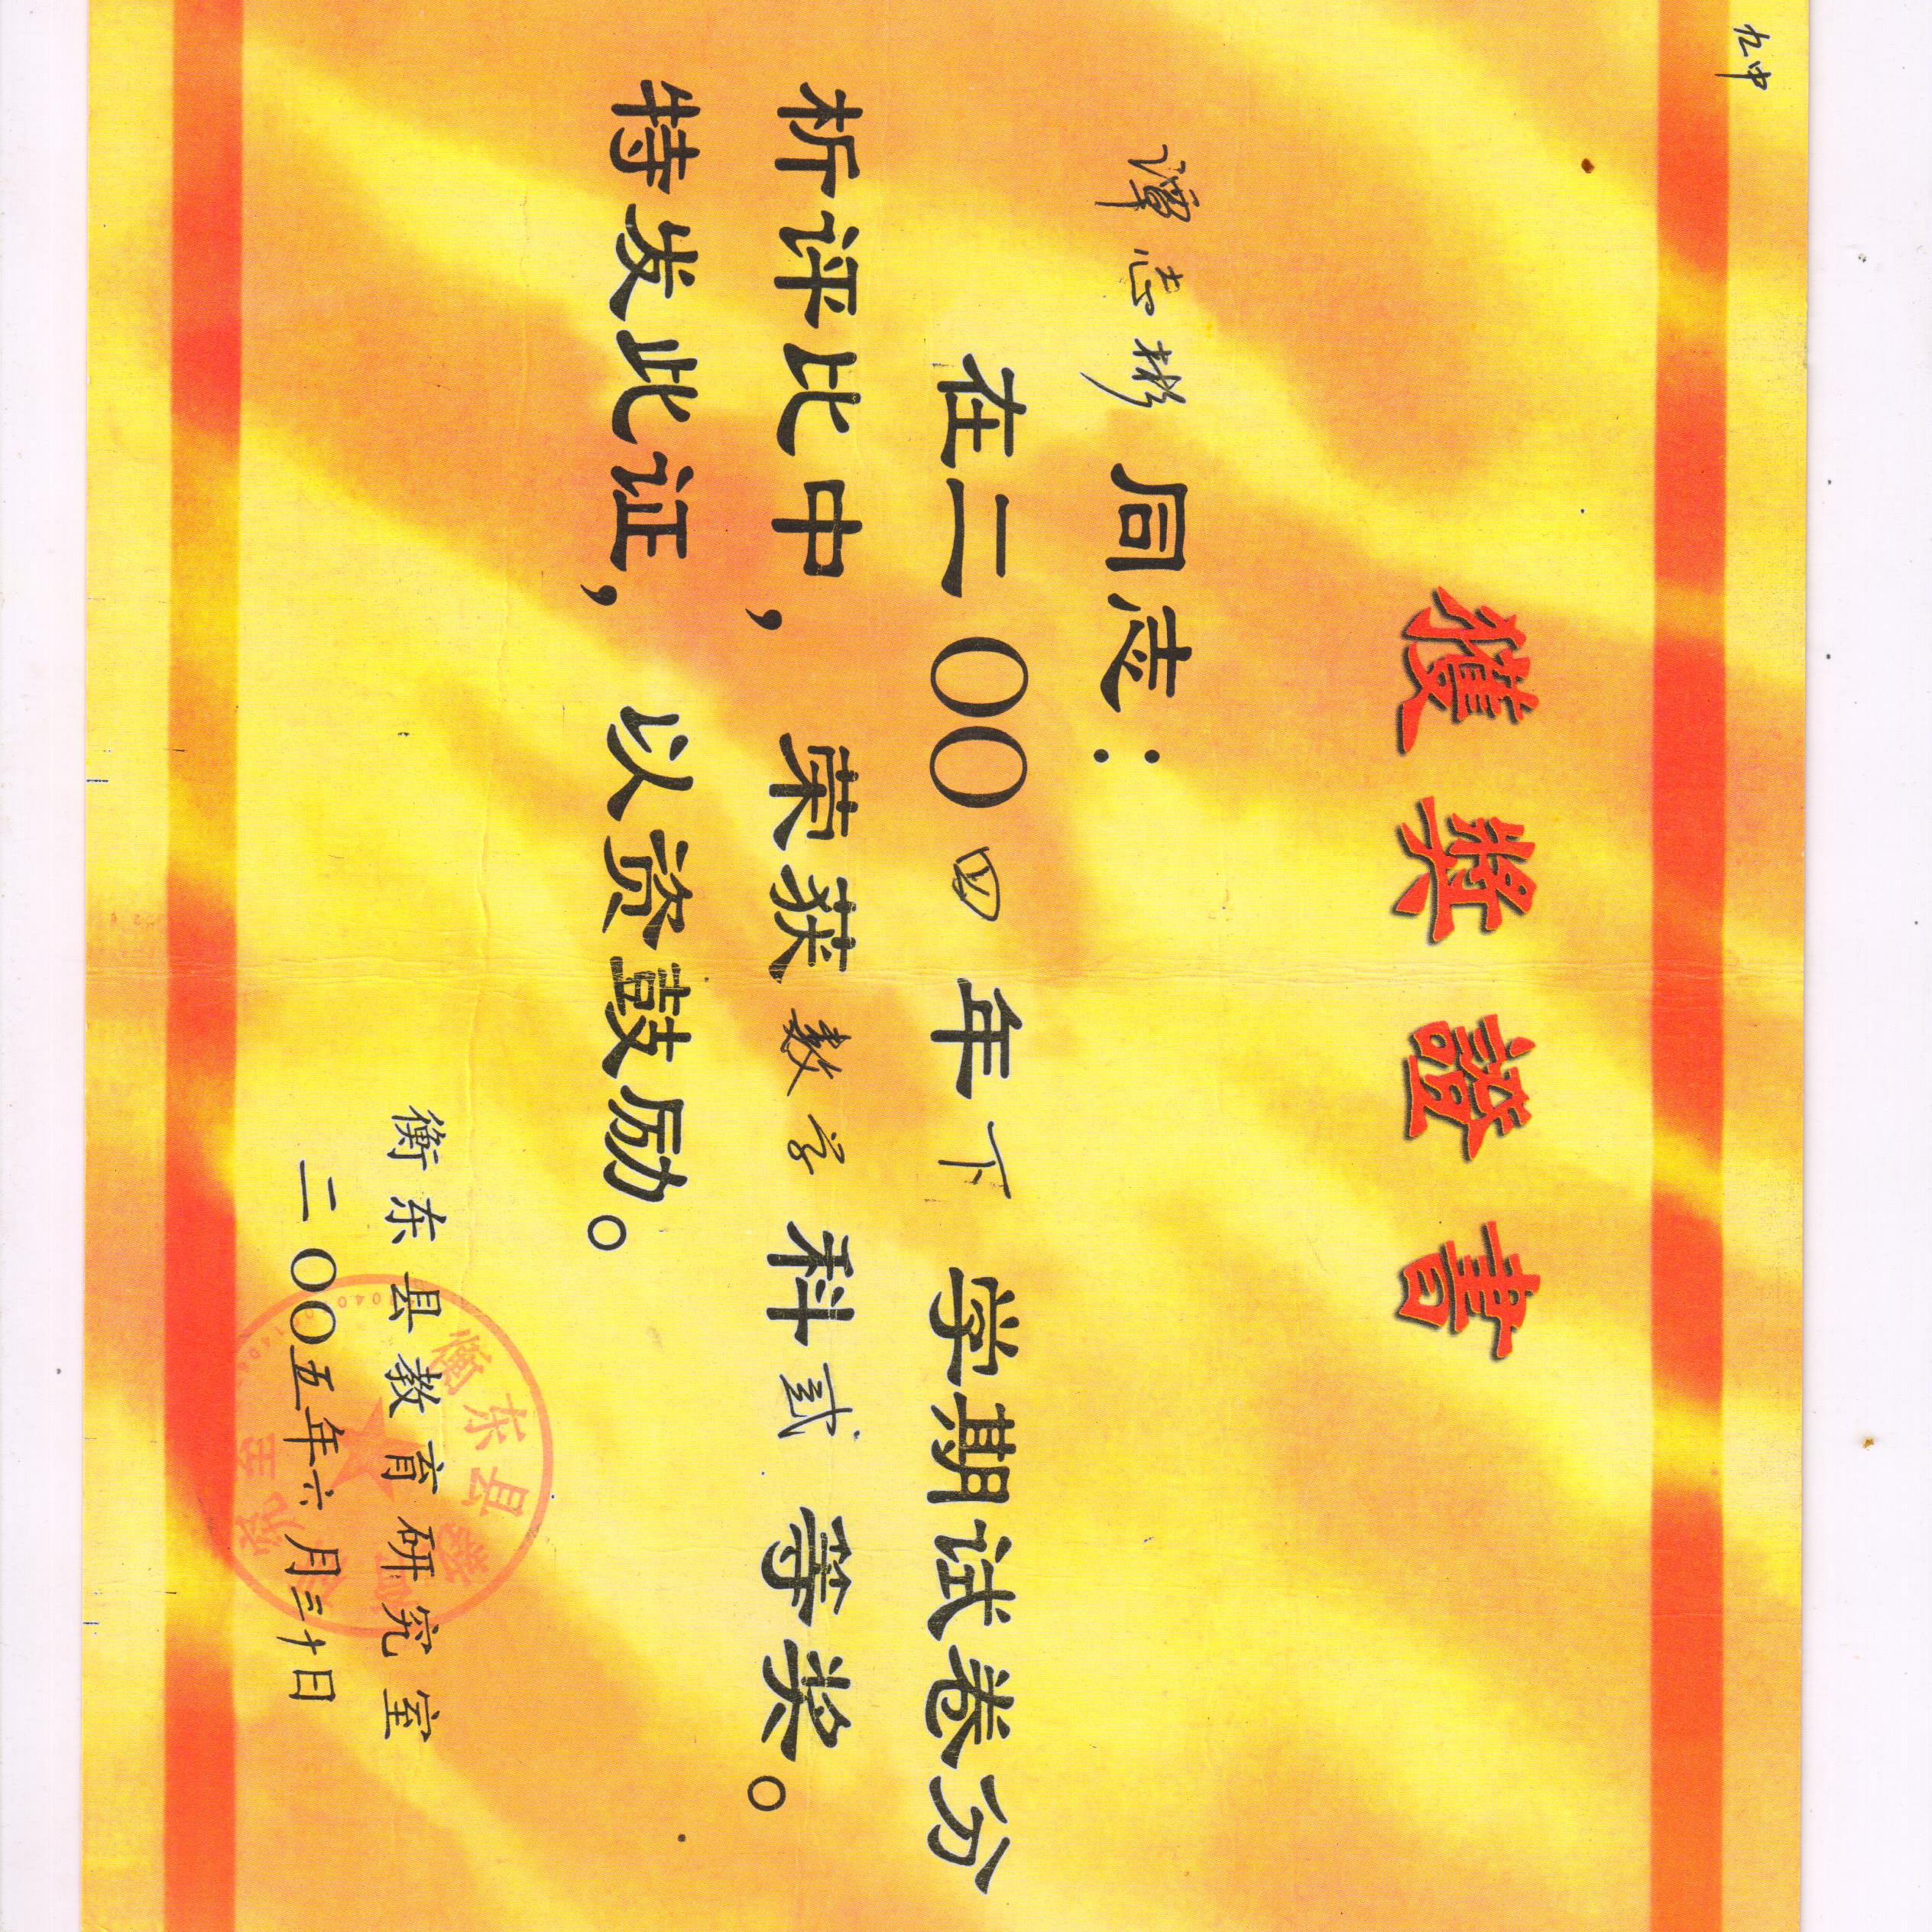 九中
獲奬證書
谭志彬 同志：
在二00四年下 学期试卷分
析评比中，荣获数学 科贰 等奖。
特发此证，以资鼓励。
衡东县教育研究室
二00五年六月三十日
衡东县教育